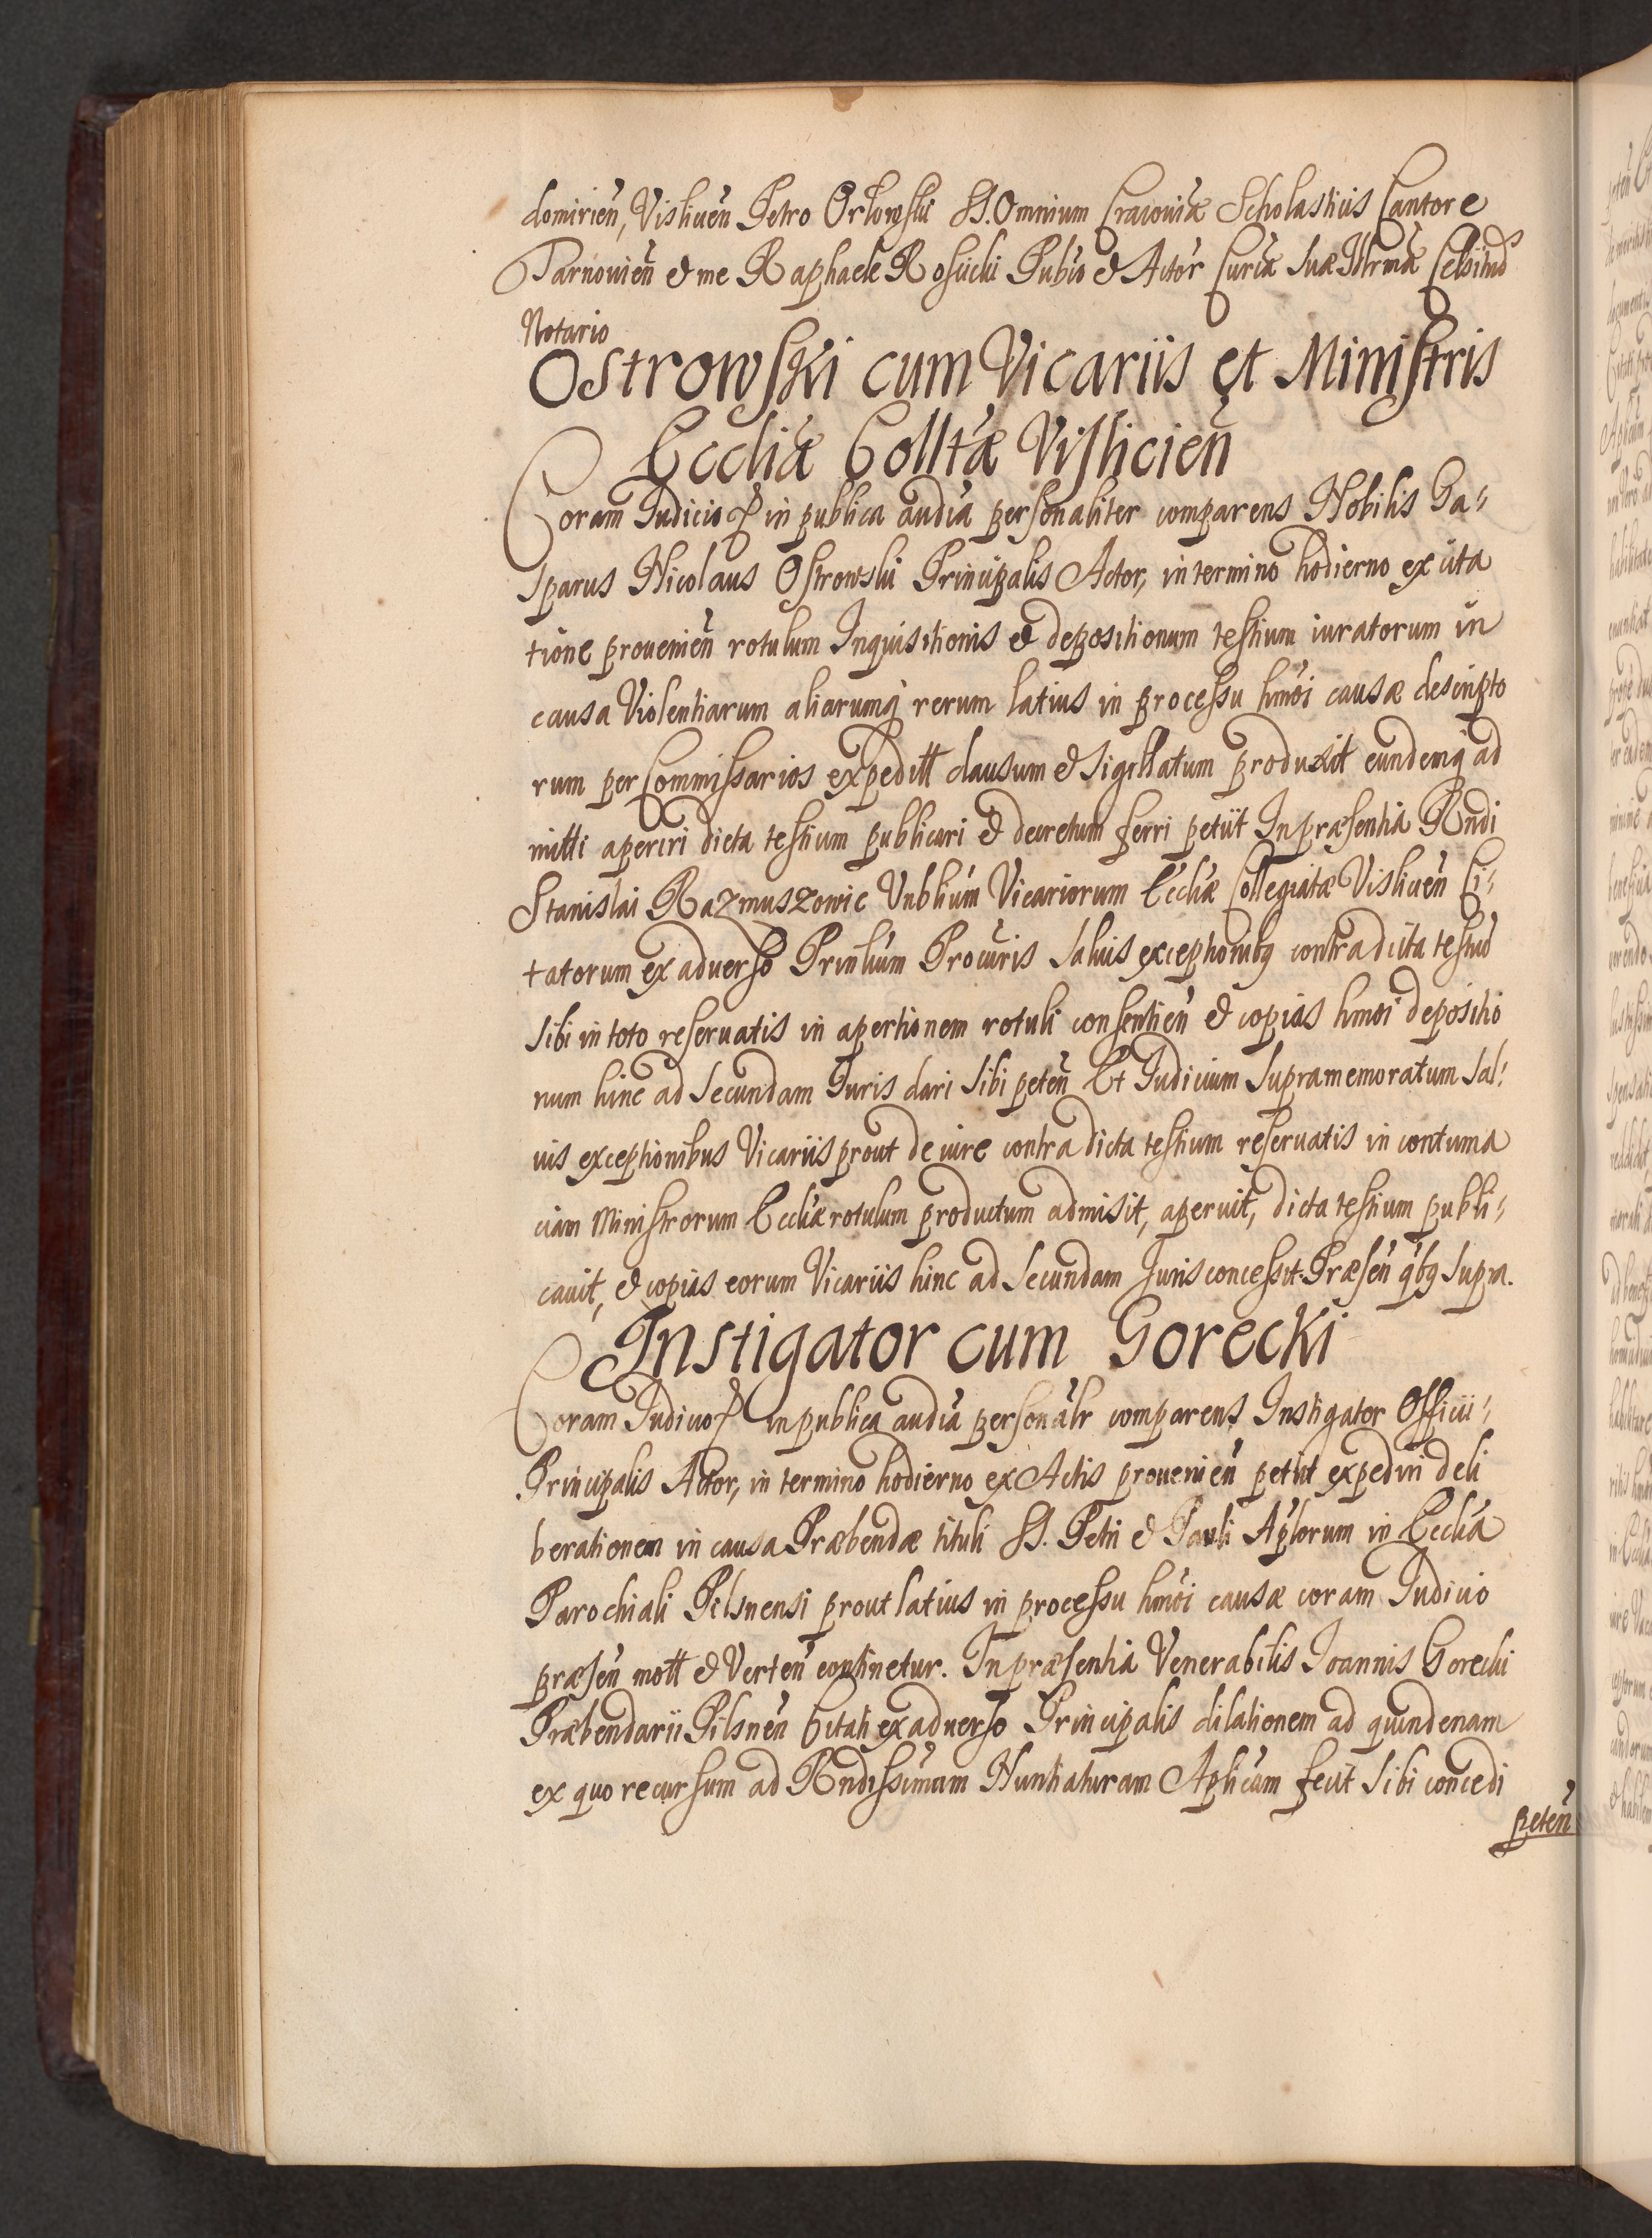 domirien, Vislicen Petro Orłowski SS. Omnium Cracoviæ Scholasticis Cantore
Tarnovien & me Raphaele Rosiicki Pubco & Actor Curiæ Suæ Illrmæ Celsitud
Notario
Ostrowski cum Vicariis et Ministris
Eccliæ Colltæ Vislicien
Coram Iudicio & in publica audia personaliter comparens Nobilis Ga-
sparus Nicolaus Ostrowski Principalis Actor, in termino hodierno ex cita
tione provenien rotulum Inquisitionis & depositionum testium iuratorum in
causa Violentiarum aliarumq rerum latius in processu hmoi causæ descripto
rum per Commissarios expeditt clausum & sigillatum produxit eundemq ad
mitti aperiri dicta testium publicari & decretum ferri petiit In præsentia Rndi
Stanislai Razmuszowic Vnblium Vicariorum Eccliæ Collegiatæ Vislicen Ci-
tatorum ex adverso Prinlium Procuris salvis exceptionibq contra dicta testiu
sibi in toto reservatis in apertionem rotuli consentien & copias hmoi depositio
num hinc ad secundam Iuris dari sibi peten Et Iudicium supramemoratum sal-
vis exceptionibus Vicariis prout de iure contra dicta testium reservatis in contuma
ciam Ministrorum Eccliæ rotulum productum admisit, aperuit, dicta testium publi-
cavit, & copias eorum Vicariis hinc ad secundam Iuris concessit. Præsen qbq supra.
Instigator cum Gorecki
Coram Iudicio & in publica audia personalr comparens Instigator Officii-
Principalis Actor, in termino hodierno ex Actis provenien petiit expediri deli
berationem in causa Præbendæ tituli SS. Petri & Pauli Aplorum in Ecclia
Parochiali Pilsnensi prout latius in processu hmoi causæ coram Iudicio
præsen mott & Verten continetur. In præsentia Venerabilis Ioannis Gorecki
Præbendarii Pilsnen Citati ex adverso Principalis dilationem ad quindenam
ex quo recursum ad Rndissimam Nuntiaturam Aplicam fecit sibi concedi
peten